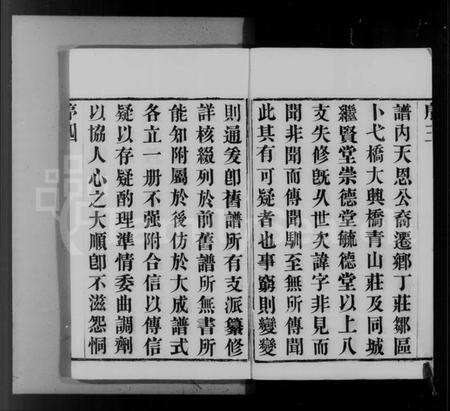 序三
譜內天恩公裔遷鄉丁莊鄒區
卜弋橋大興橋青山莊及同城
繼賢堂崇德堂毓德堂以上八
支失修旣久世次諱字非見而
聞非聞而傳聞馴至無所傳聞
此其有可疑者也事窮則變變
則通爰卽舊譜所有支派纂修
詳核綴列於前舊譜所無書所
能知附屬於後仿於大成譜式
各立一册不强附合信以傳信
疑以存疑酌理準情委曲調劑
以協人心之大順卽不滋怨恫
序四